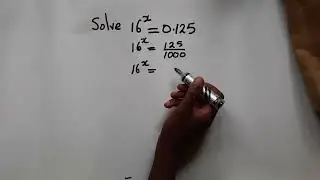 Solve 16^x = 0.125
16^x = 125/1000
16^x =